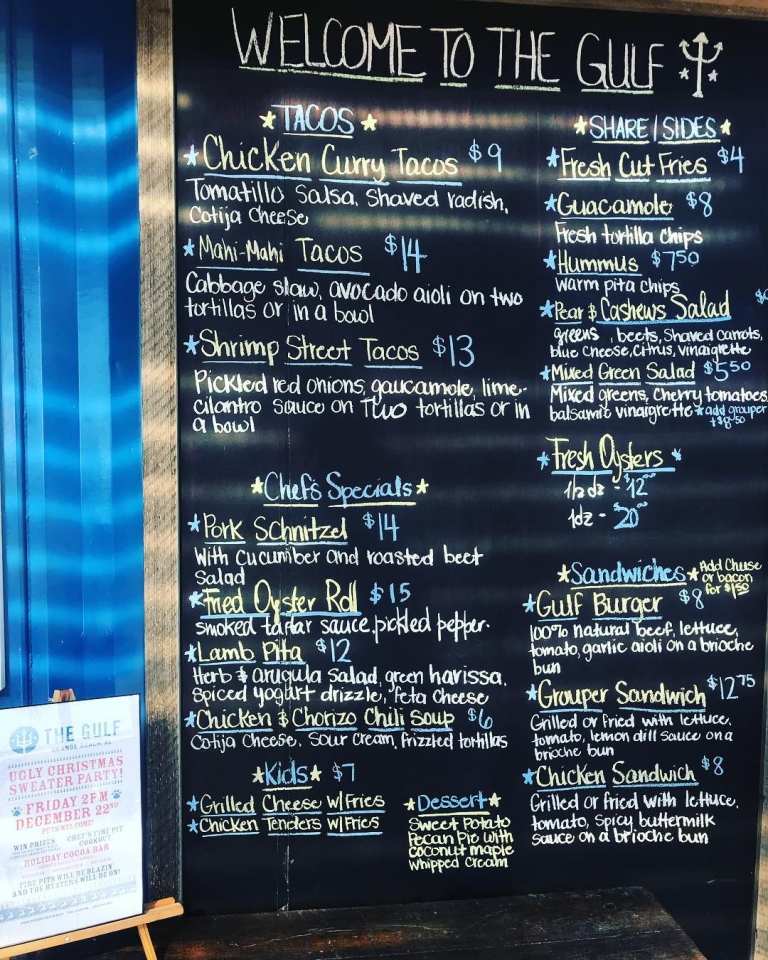 WELCOME TO THE GULF
TACOS
Chicken Curry Tacos $9
Tomatillo Salsa, Shaved radish,
Cotija Cheese
Mahi-Mahi Tacos $14
Cabbage slaw, avocado aioli on two
tortillas or in a bowl
Shrimp Street Tacos $13
Pickled red onions, gaucamole, lime-
cilantro sauce on Two tortillas or in
a bowl
Chef's Specials
Pork Schnitzel $14
with cucumber and roasted beet
Salad
Fried Oyster Roll $15
smoked tartar sauce, pickled pepper.
Lamb Pita $12
Herb & arugula salad, green harissa,
Spiced yogurt drizzle, feta cheese
Chicken & Chorizo Chili Soup $6
Cotija Cheese, Sour Cream, frizzled tortillas
Kids $7
Grilled Cheese w/Fries
Chicken Tenders w/Fries
Dessert
Sweet Potato
Pecan Pie with
coconut maple
whipped cream
SHARE/SIDES
Fresh Cut Fries $4
Guacamole $8
Fresh tortilla chips
Hummus $7.50
warm pita chips
Pear & Cashews Salad
greens, beets, Shaved carrots,
blue cheese, citrus, vinaigrette
Mixed Green Salad $5.50
Mixed greens, Cherry tomatoes,
balsamic vinaigrette *add grouper
+$8.50
Fresh Oysters
1/2 dz - $12.00
1dz - $20.00
Sandwiches
Add Cheese
or bacon
for $1.50
Gulf Burger $8
100% natural beef, lettuce,
tomato, garlic aioli on a brioche
bun
Grouper Sandwich $12.75
Grilled or fried with lettuce,
tomato, lemon dill sauce on a
brioche bun
Chicken Sandwich $8
Grilled or fried with lettuce,
tomato, spicy buttermilk
sauce on a brioche bun
THE GULF
ORANGE BEACH, AL
UGLY CHRISTMAS
SWEATER PARTY!
FRIDAY 2PM
DECEMBER 22ND
PETS WELCOME!
WIN PRIZES
CHEF'S FIRE PIT
COOKOUT
HOLIDAY COCOA BAR
FIRE PITS WILL BE BLAZIN'
AND THE HEATERS WILL BE ON!